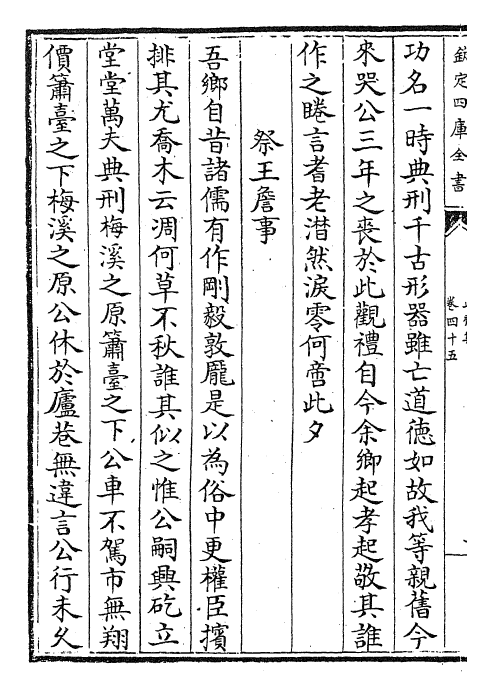 欽定四庫全書
卷四十五
功名一時典刑千古形器雖亡道德如故我等親舊今
來哭公三年之喪於此觀禮自今余鄉起孝起敬其誰
作之睠言耆老潸然淚零何啻此夕
祭王詹事
吾鄉自昔諸儒有作剛毅敦龎是以為俗中更權臣擯
排其尤喬木云凋何草不秋誰其似之惟公嗣興矻立
堂堂萬夫典刑梅溪之原簫臺之下公車不駕市無翔
價簫臺之下梅溪之原公休於廬巷無違言公行未夂